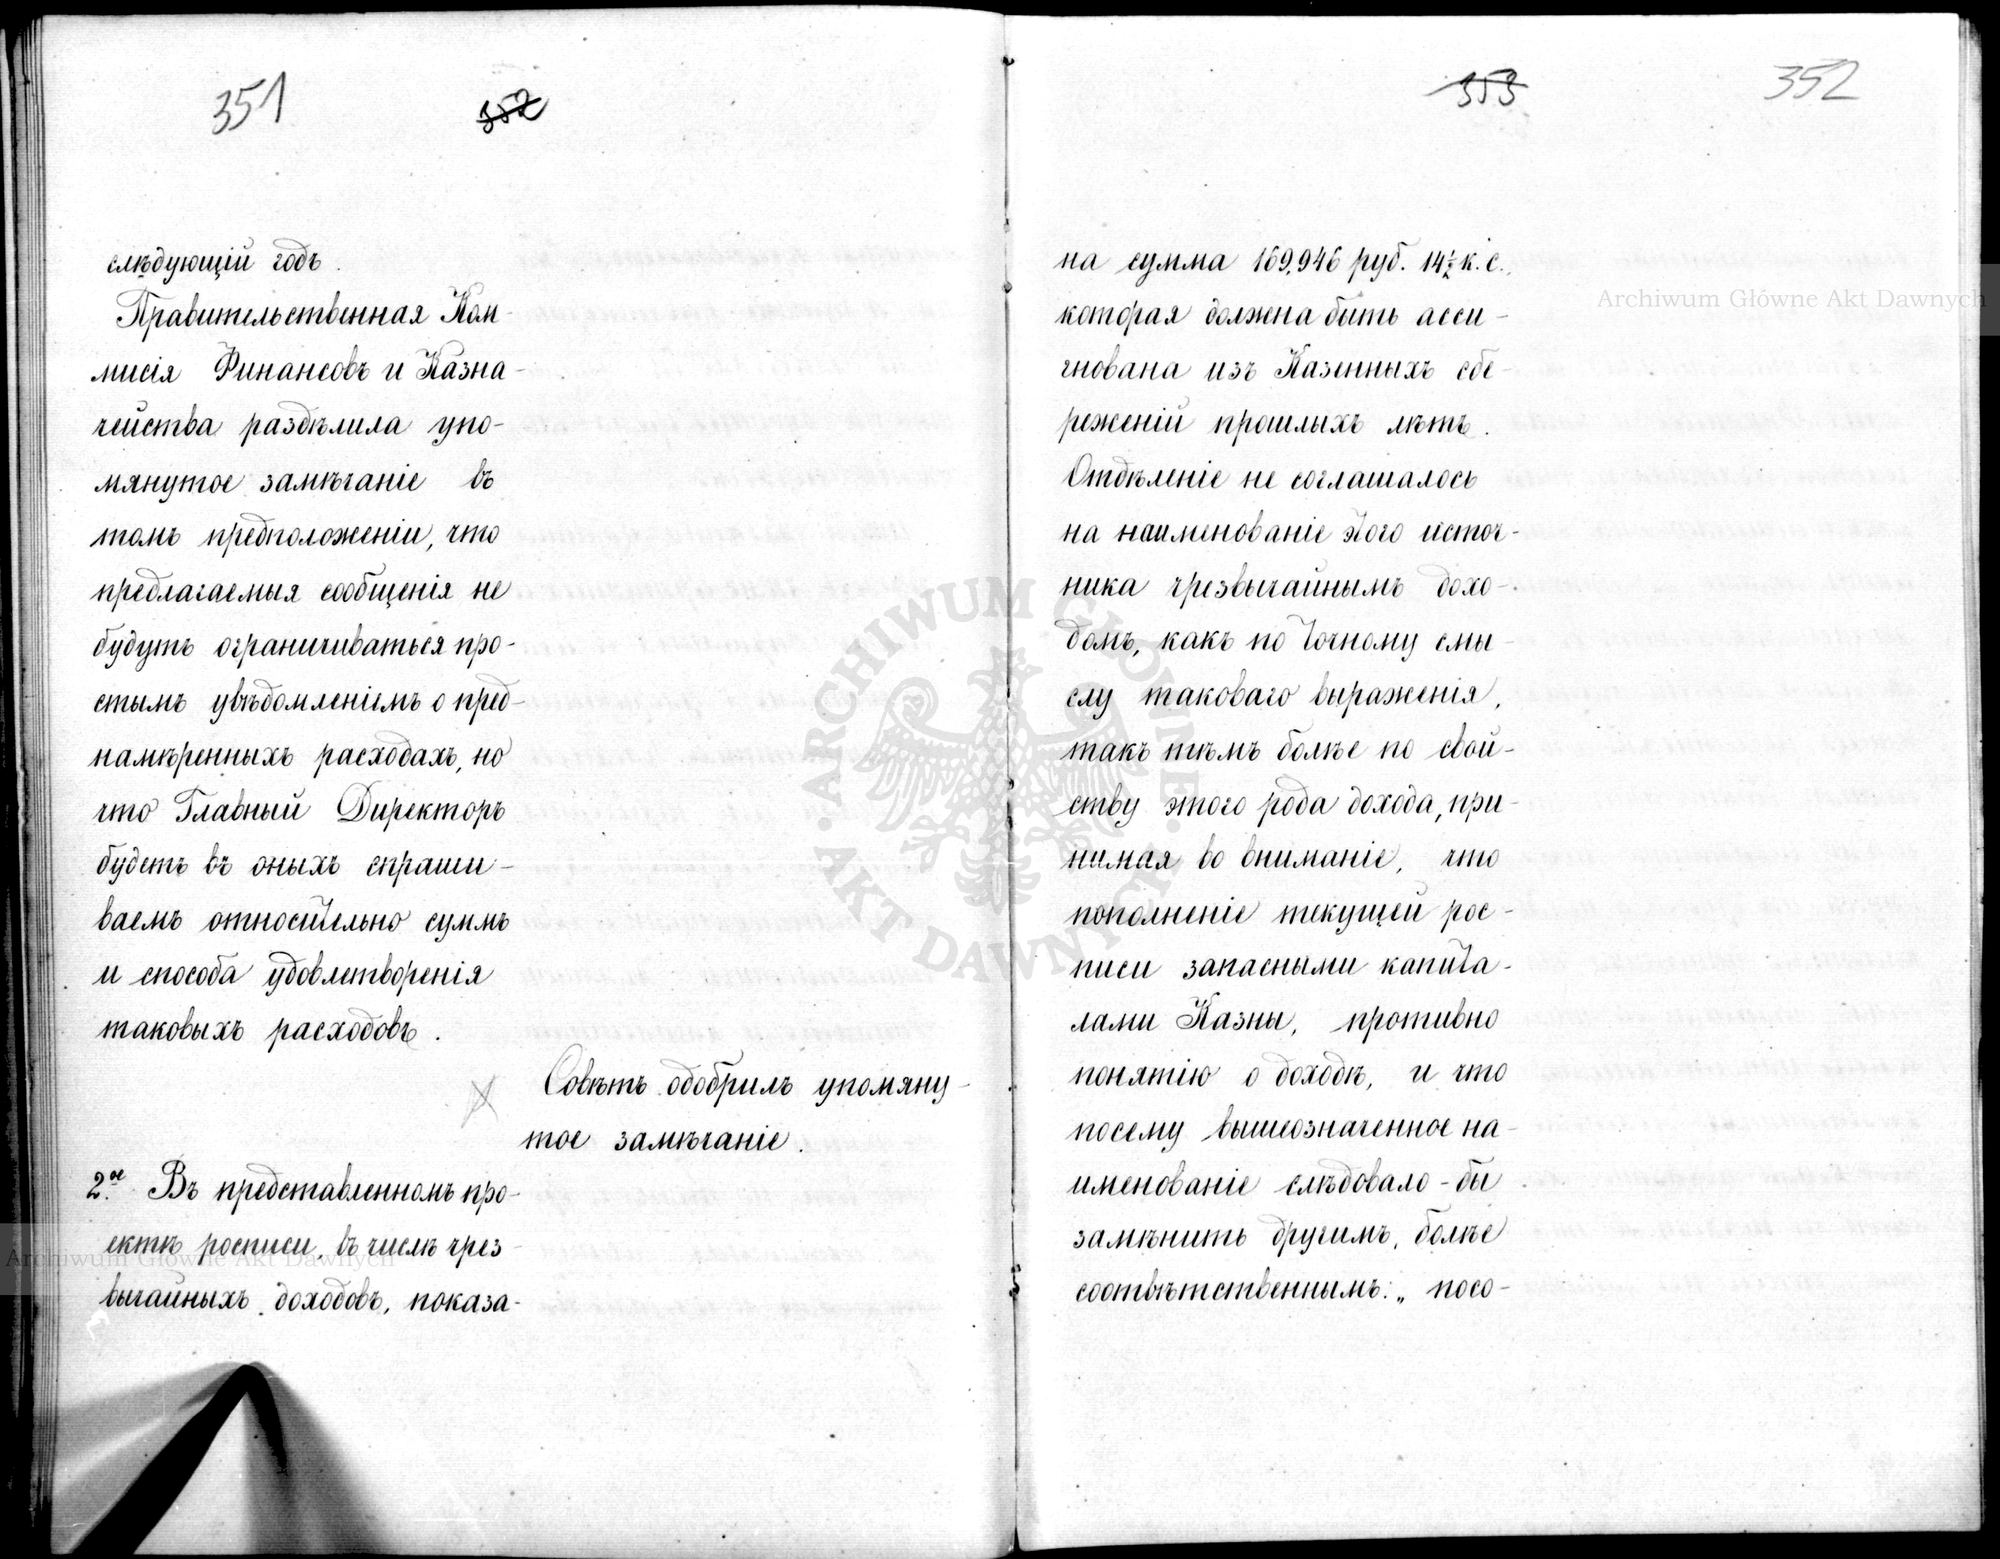 351
352
слѣдующій годъ.
Правительственная Ком-
мисія Финансовъ и Казна-
чейства раздѣлила упо-
мянутое замѣчаніе въ
томъ предположеніи, что
предлагаемыя сообщенія не
будутъ ограничиваться про-
стымъ увѣдомленіемъ о пред-
намѣренныхъ расходахъ, но
что Главный Директоръ
будетъ въ оныхъ спраши-
ваемъ относительно суммъ
и способа удовлетворенія
таковыхъ расходовъ.
Совѣтъ одобрилъ упомяну-
тое замѣчаніе.
2.ое Въ представленномъ про-
ектѣ росписи, въ числѣ чрез-
вычайныхъ доходовъ, показа-
353
352
на сумма 169,946 руб. 14½ к. с.,
которая должна быть асси-
гнована изъ Казенныхъ сбе-
реженій прошлыхъ лѣтъ.
Отдѣленіе не соглашалось
на наименованіе этого источ-
ника чрезвычайнымъ дохо-
домъ, какъ по точному смы-
слу таковаго выраженія,
такъ тѣмъ болѣе по свой-
ству этого рода дохода, при-
нимая во вниманіе, что
пополненіе текущей рос-
писи запасными капита-
лами Казны, противно
понятію о доходѣ, и что
посему вышеозначенное на-
именованіе слѣдовало-бы
замѣнить другимъ, болѣе
соотвѣтственнымъ: „ посо-
Archiwum Główne Akt Dawnych
Archiwum Główne Akt Dawnych
ARCHIWUM GŁÓWNE AKT DAWNYCH